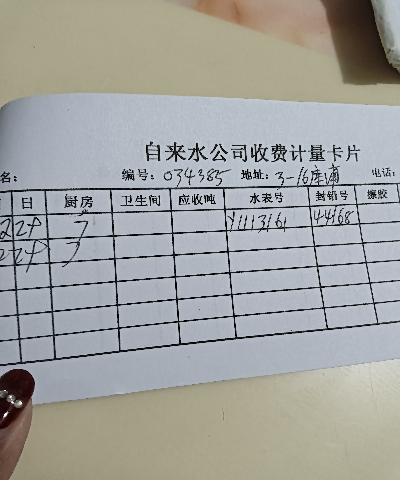 自来水公司收费计量卡片
名: 编号: 034385 地址: 3-16 电话:
日 厨房 卫生间 应收吨 水表号 封铅号 擦胶
7 Y1113161 44168